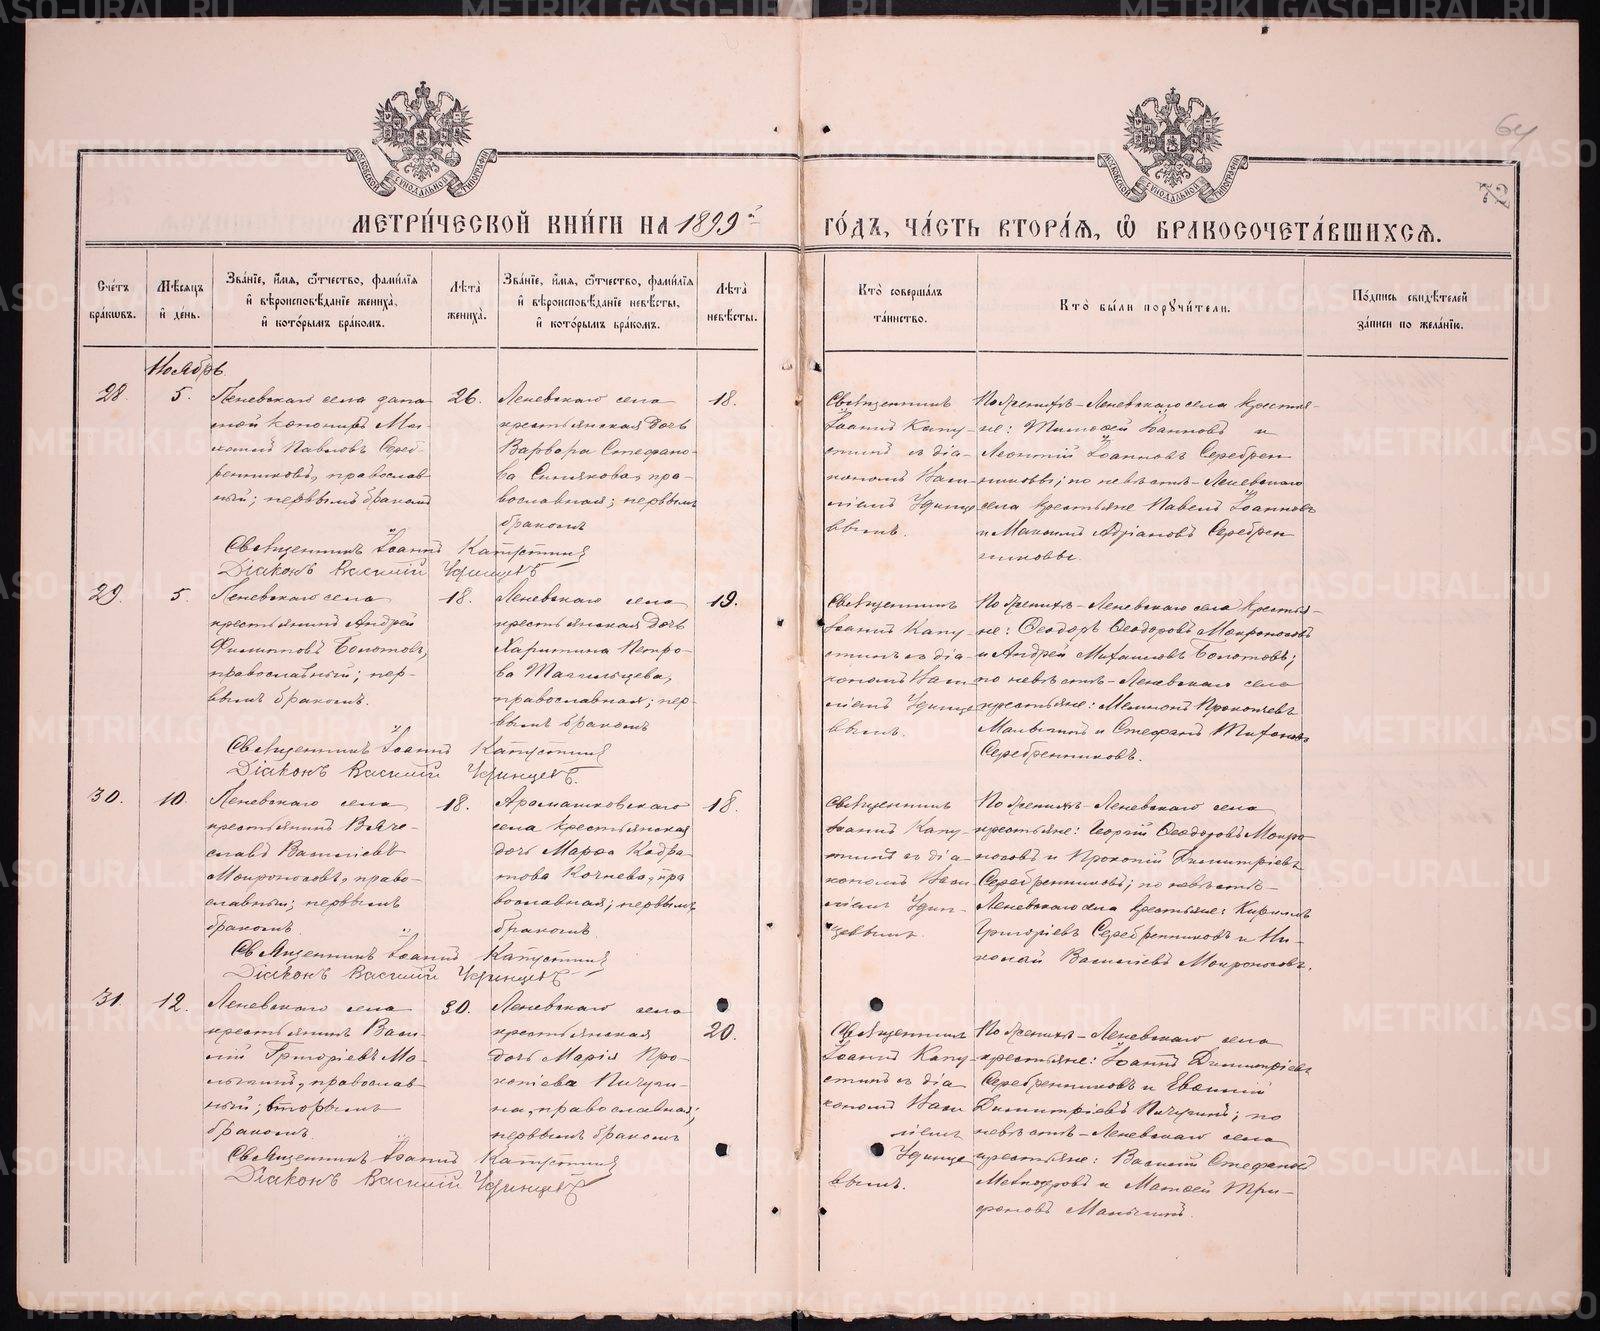 МОСКОВСКОЙ СѴНОДАЛЬНОЙ ТИПОГРАФІИ
МОСКОВСКОЙ СѴНОДАЛЬНОЙ ТИПОГРАФІИ
64
72
МЕТРИ́ЧЕСКОЙ КНИ́ГИ НА 1899й ГО́ДЪ, ЧА́СТЬ ВТОРА́Я, Ѽ БРАКОСОЧЕТА́ВШИХСЯ.
Сче́тъ бра́кѡвъ.
Мѣ́сяцъ и҆ де́нь.
Зва́нїе, и҆́мя, ѻ҆́тчество, фами́лїя и҆ вѣроисповѣ́данїе жениха̀, и҆ кото́рымъ бра́комъ.
Лѣ́та жениха̀.
Зва́нїе, и҆́мя, ѻ҆́тчество, фами́лїя и҆ вѣроисповѣ́данїе невѣ́сты, и҆ кото́рымъ бра́комъ.
Лѣ́та невѣ́сты.
Кто̀ соверша́лъ та́инство.
Кто̀ бы́ли порꙋчи́тели.
По́дпись свидѣ́телей за́писи по жела́нїю.
Ноябрь
28.
5.
Леневскаго села запа-
сной канониръ Ми-
хаилъ Павловъ Сереб-
ренниковъ, православ
ный; первымъ бракомъ
26.
Леневскаго села
крестьянская дочь
Варвара Стефано-
ва Синякова, пра-
вославная; первымъ
бракомъ
18.
Священникъ
Іоаннъ Капу-
стинъ съ діа-
кономъ Васи-
ліемъ Удинце
вымъ.
По женихѣ - Леневскаго села крестья-
не: Тимоѳей Іоанновъ и
Леонтій Іоанновъ Серебрен
никовы; по невѣстѣ - Леневскаго
села крестьяне Павелъ Іоанновъ
и Максимъ Адріановъ Серебрен
никовы.
Священникъ Іоаннъ Капустинъ
Діаконъ Василій Удинцевъ
29.
5.
Леневскаго села
крестьянинъ Андрей
Филипповъ Болотовъ,
православный; пер-
вымъ бракомъ.
18.
Леневскаго села
крестьянская дочь
Харитина Петро-
ва Тагильцева,
православная; пер-
вымъ бракомъ
19.
Священникъ
Іоаннъ Капу-
стинъ съ діа-
кономъ Васи
ліемъ Удинце
вымъ.
По женихѣ - Леневскаго села крестья-
не: Ѳеодоръ Ѳеодоровъ Мокроносовъ
и Андрей Михаиловъ Болотовъ;
по невѣстѣ - Леневскаго села
крестьяне: Прокопіевъ
Малыгинъ и Стефанъ
Серебренниковъ.
Священникъ Іоаннъ Капустинъ
Діаконъ Василій Удинцевъ.
30.
10.
Леневскаго села
крестьянинъ Вяче-
славъ Василіевъ
Мокроносовъ, право-
славный; первымъ
бракомъ.
18.
Арамашковскаго
села крестьянская
дочь Марѳа Кодра
това Кочнева, пра
вославная; первымъ
бракомъ
18.
Священникъ
Іоаннъ Капу
стинъ съ діа-
кономъ Васи
ліемъ Удин-
цевымъ.
По женихѣ - Леневскаго села
крестьяне: Георгій Ѳеодоровъ Мокро
носовъ и Прокопій Димитріевъ
Серебренниковъ; по невѣстѣ -
Леневскаго села крестьяне: Кириллъ
Григоріевъ Серебренниковъ и Ни-
колай Василіевъ Мокроносовъ.
Священникъ Іоаннъ Капустинъ
Діаконъ Василій Удинцевъ
31.
12.
Леневскаго села
крестьянинъ Васи-
лій Григоріевъ Ма-
лыгинъ, православ
ный; вторымъ
бракомъ.
30.
Леневскаго села
крестьянская
дочь Марія Про-
копіева Пичуги-
на, православная;
первымъ бракомъ
20.
Священникъ
Іоаннъ Капу
стинъ съ діа
кономъ Васи
ліемъ
Удинце
вымъ.
По женихѣ - Леневскаго села
крестьяне: Іоаннъ Димитріевъ
Серебренниковъ и Евѳимій
Димитріевъ Пичугинъ; по
невѣстѣ - Леневскаго села
крестьяне: Василій Стефановъ
и Матѳей Три-
фоновъ Малыгинъ.
Священникъ Іоаннъ Капустинъ
Діаконъ Василій Удинцевъ
METRIKI.GASO-URAL.RU